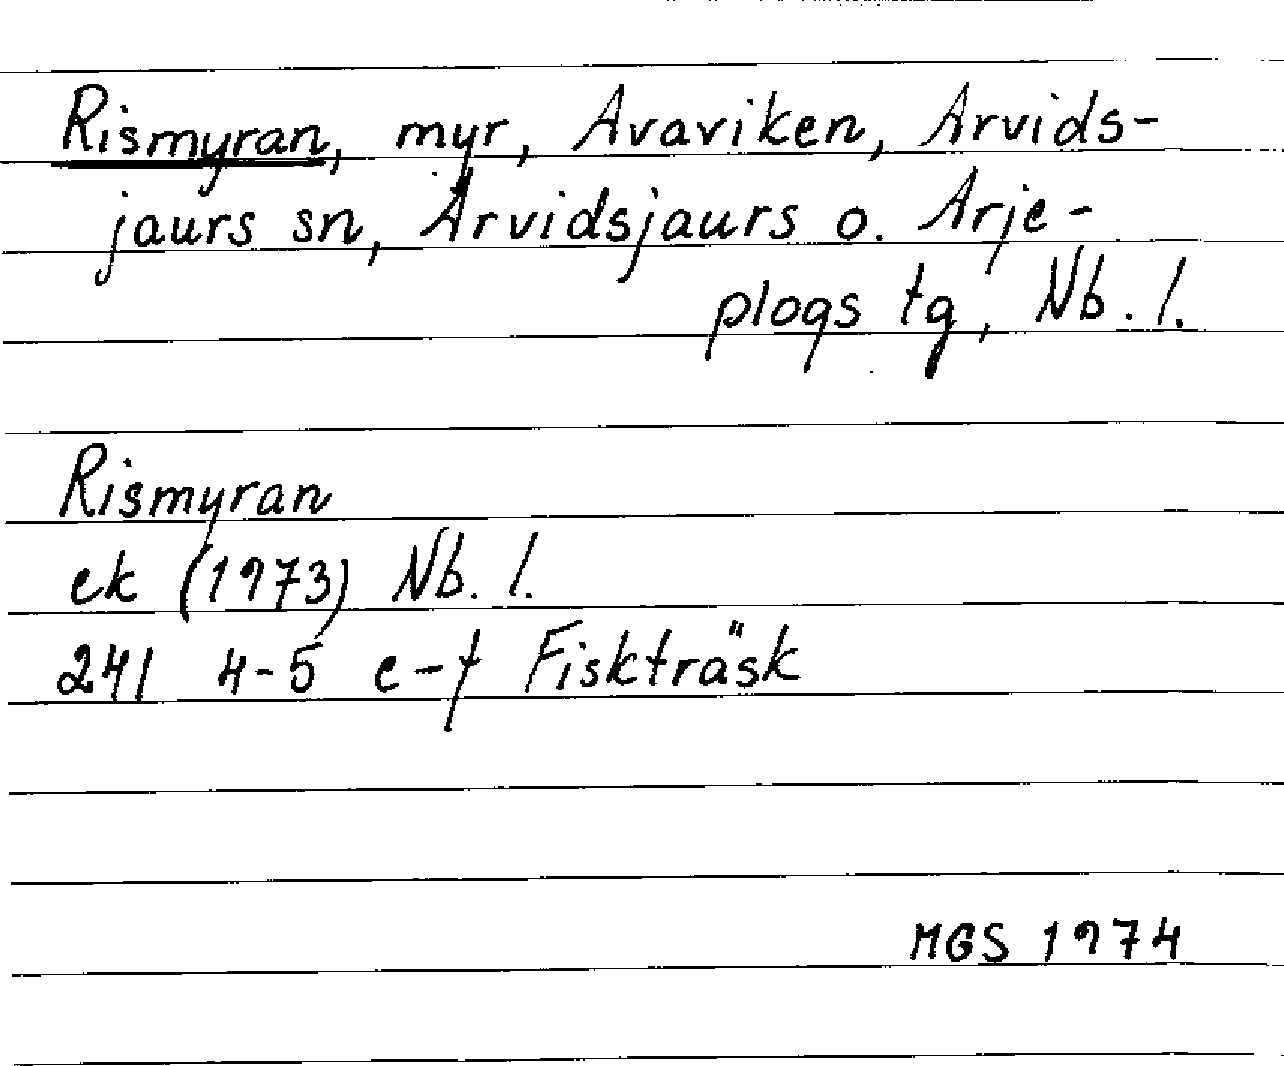 Rismyran, myr, Avaviken, Arvids-
jaurs sn, Arvidsjaurs o. Arje-
plogs tg, Nb. l.
Rismyran
ek (1973) Nb. l.
241 4-5 e-f Fiskträsk
MGS 1974